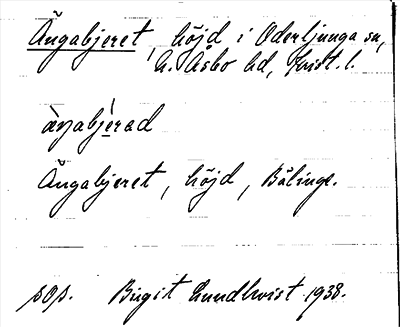 Ängabjeret, höjd i Oderljunga sn,
N. Åsbo hd, Krist. l.
àŋabj̀erad
Ängabjeret, höjd, Bälinge.
sOp. Birgit Lundkvist 1938.